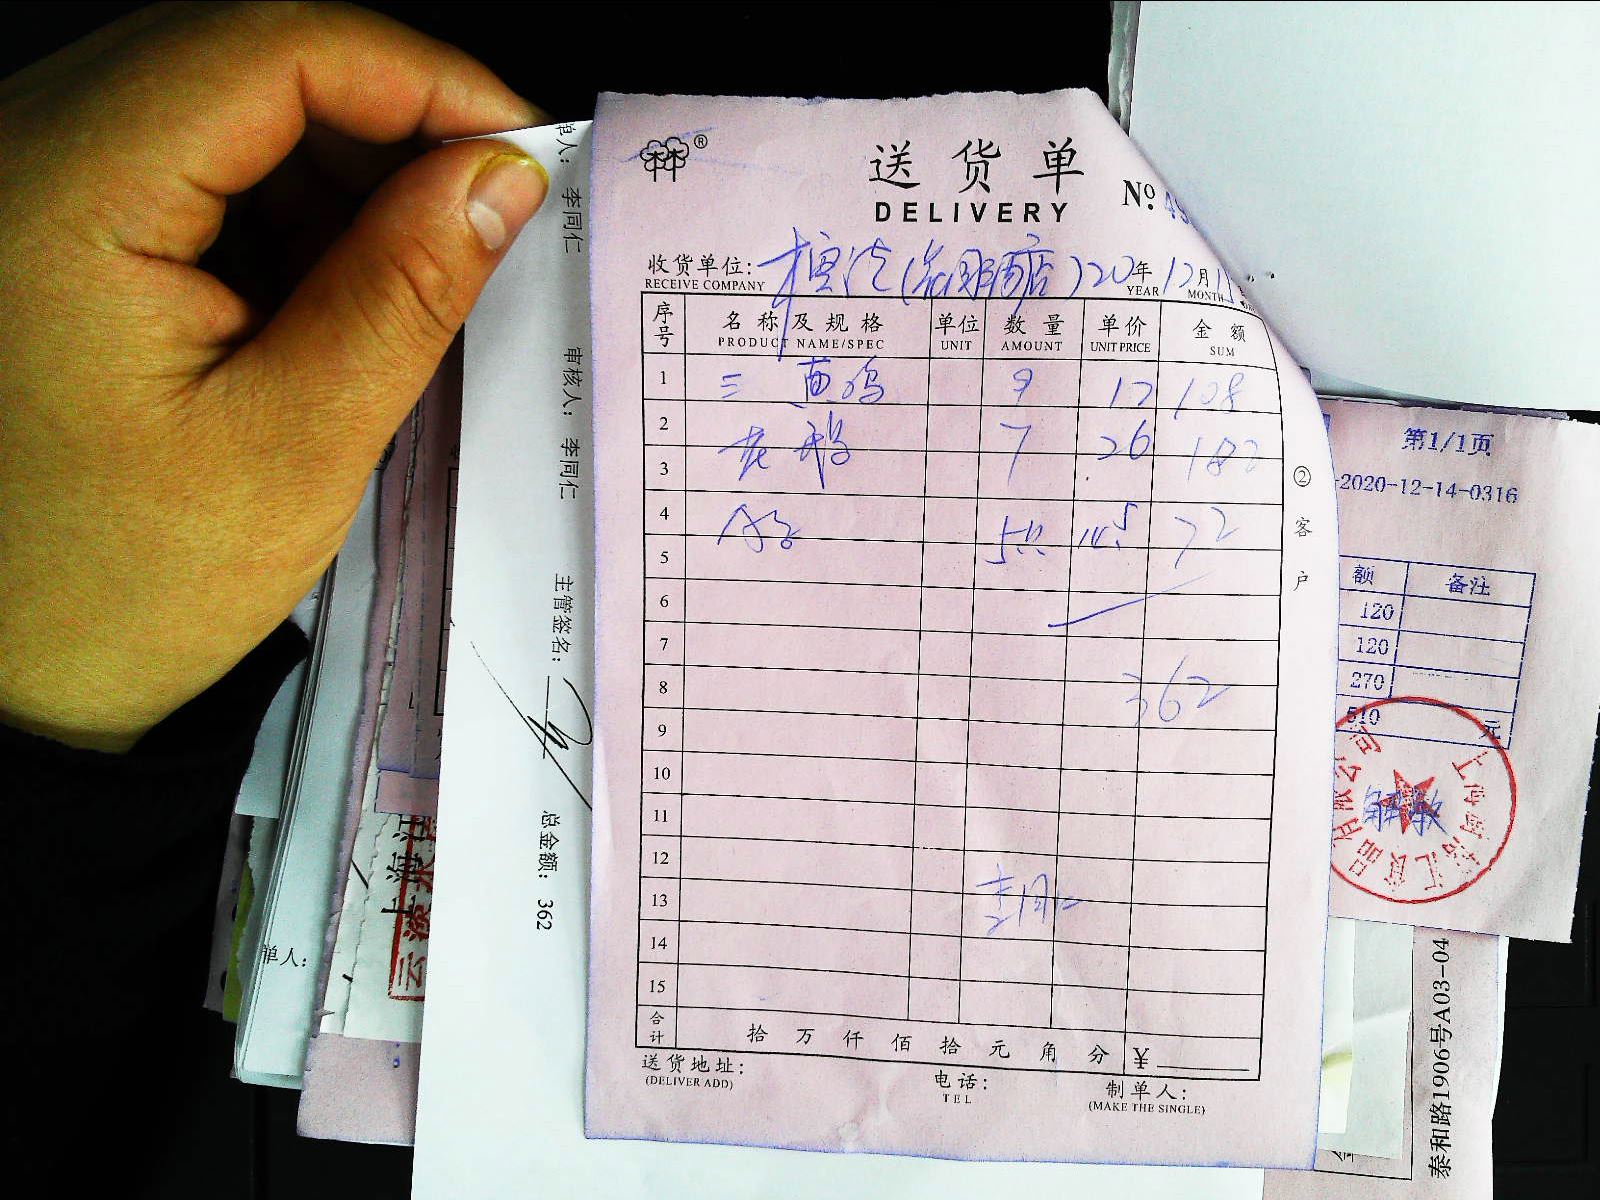 ®
送货单
DELIVERY
№
收货单位: 20年12月
RECEIVE COMPANY YEAR MONTH
序号 名称及规格 单位 数量 单价 金额
PRODUCT NAME/SPEC UNIT AMOUNT UNIT PRICE SUM
1 三黄鸡 9 12 108
2 老鸡 7 26 182
3
4 72
5
6
7
8 362
9
10
11
12
13
14
15
合计 拾万仟佰拾元角分 ¥
送货地址: 电话: 制单人:
(DELIVER ADD) TEL (MAKE THE SINGLE)
②客户
单人: 李同仁
审核人: 李同仁
主管签名:
总金额: 362
单人:
第1/1页
-2020-12-14-0316
额 备注
120
120
270
510 元
解敏
泰和路1906号A03-04